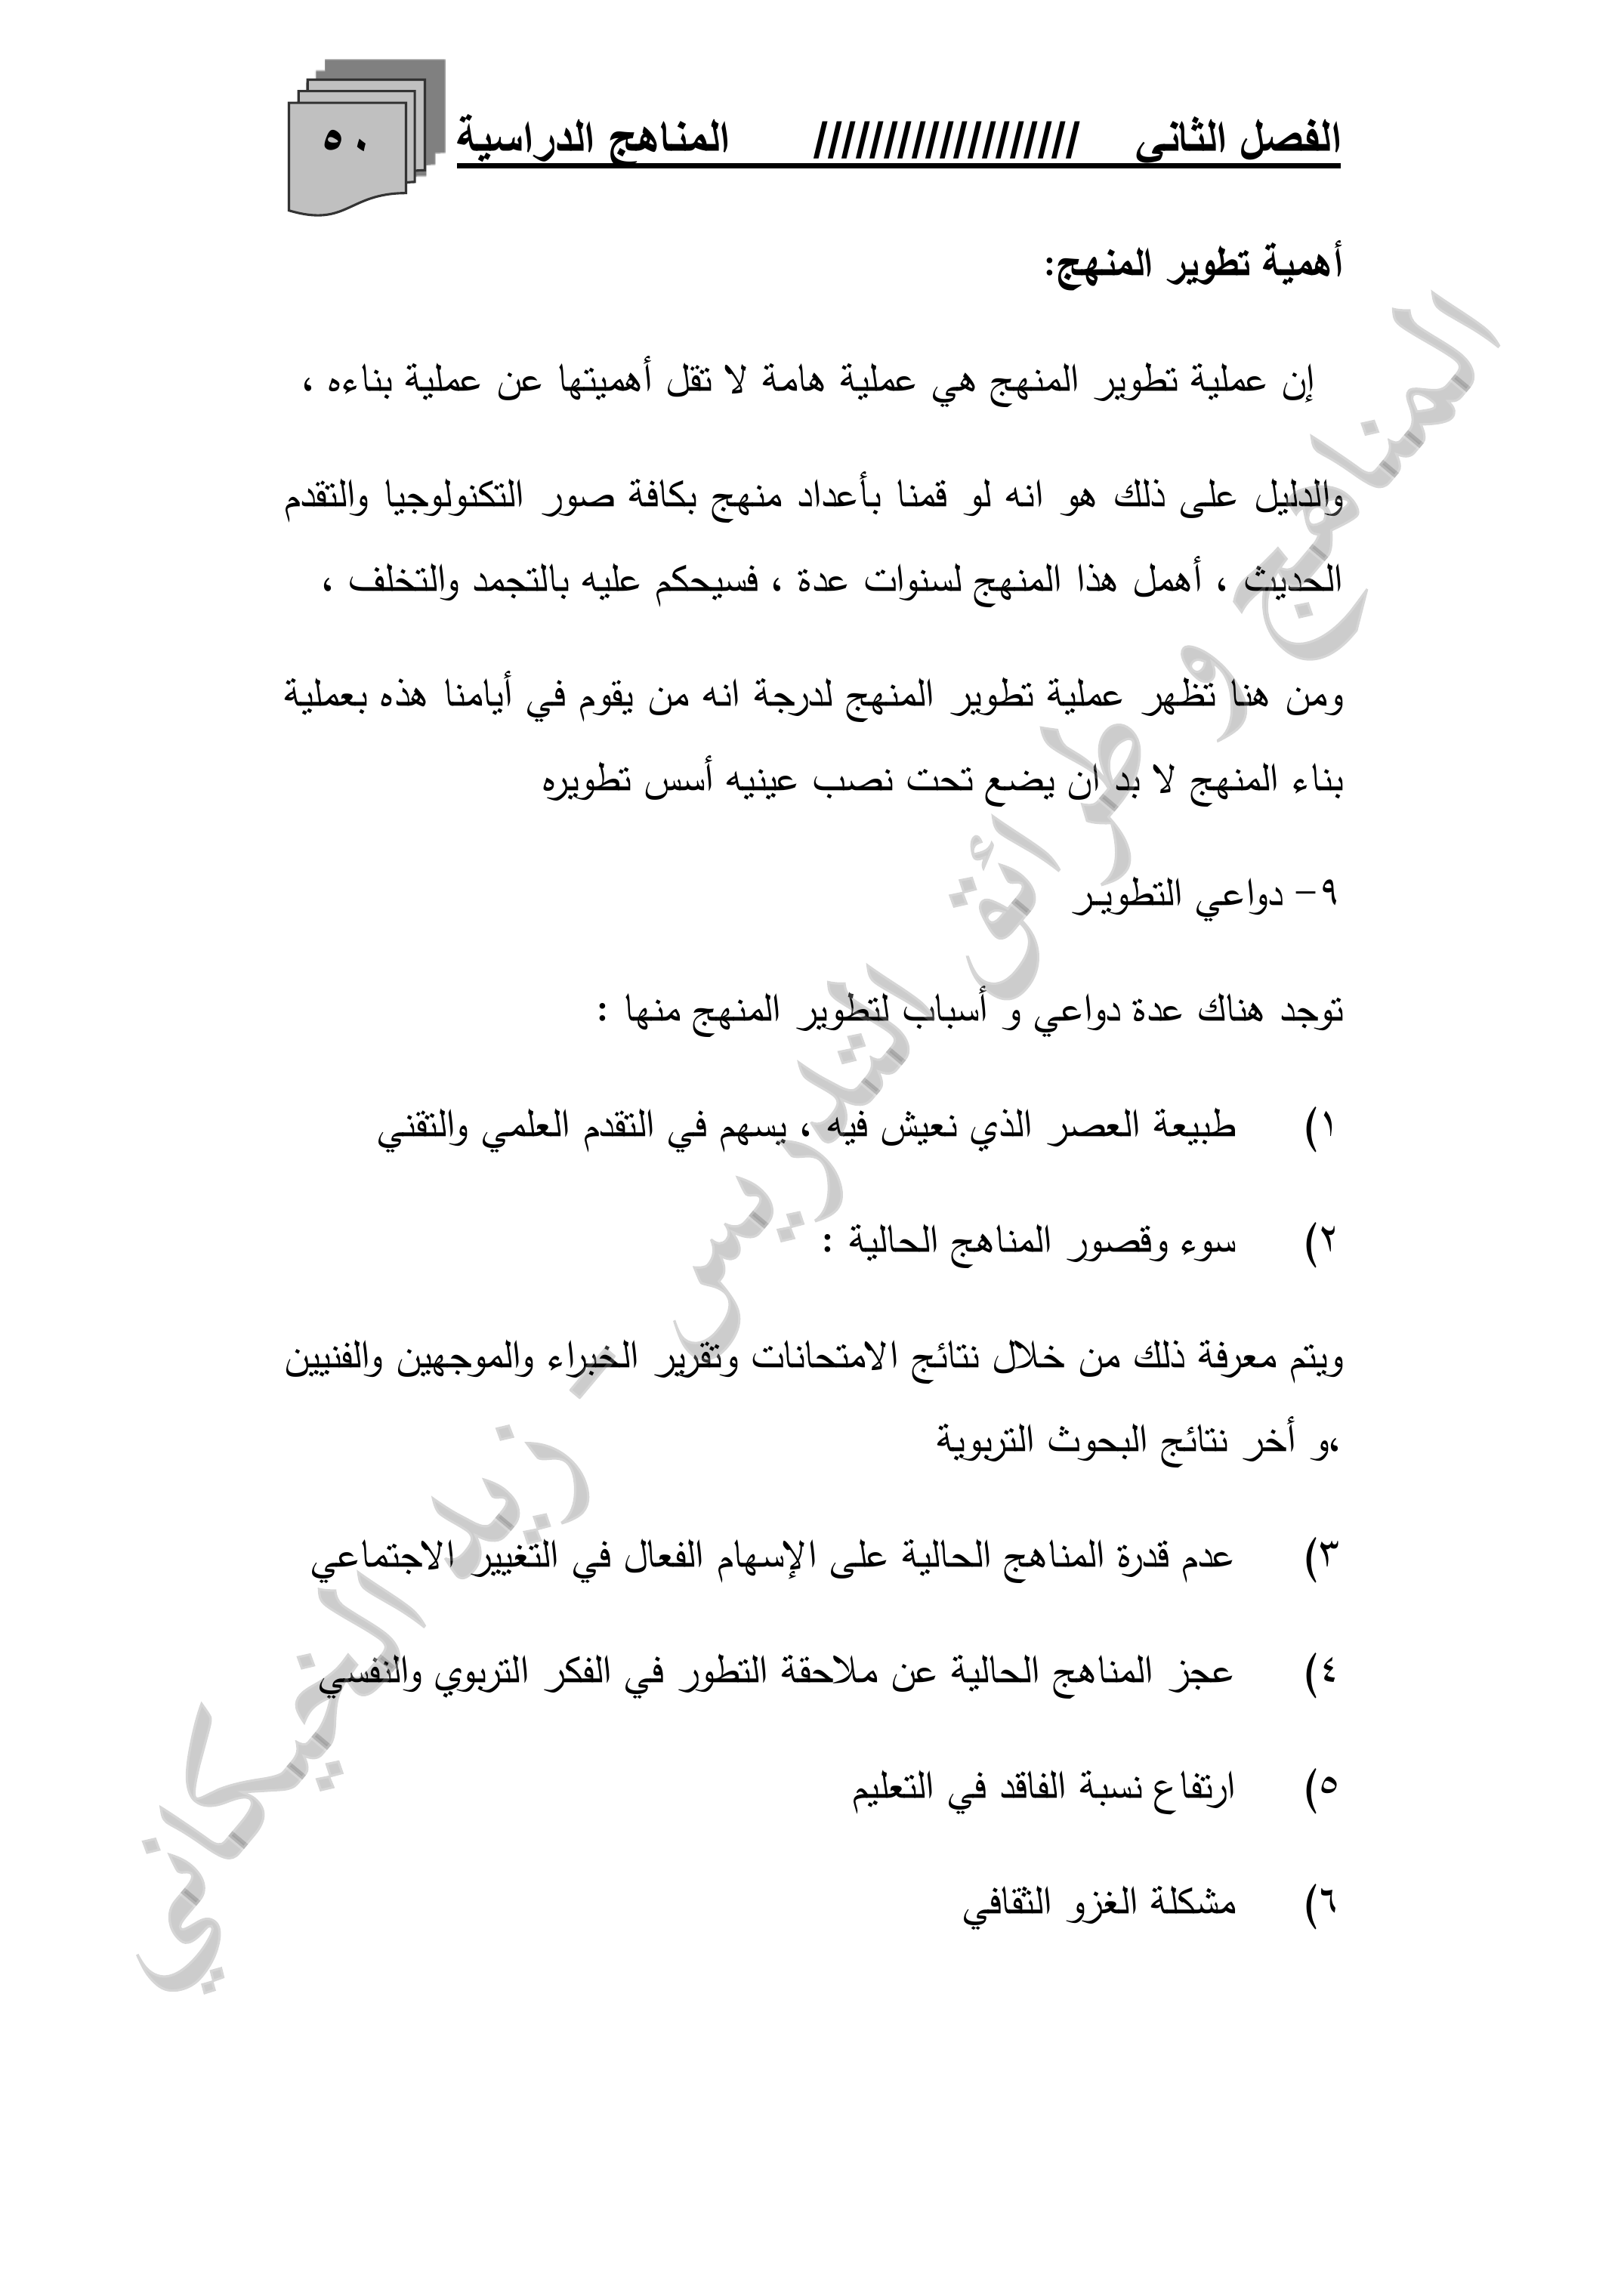 الفصل الثاني /////////////////// المناهج الدراسية ٥٠
أهمية تطوير المنهج:
إن عملية تطوير المنهج هي عملية هامة لا تقل أهميتها عن عملية بناءه ،
والدليل على ذلك هو انه لو قمنا بأعداد منهج بكافة صور التكنولوجيا والتقدم
الحديث ، أهمل هذا المنهج لسنوات عدة ، فسيحكم عليه بالتجمد والتخلف ،
ومن هنا تظهر عملية تطوير المنهج لدرجة انه من يقوم في أيامنا هذه بعملية
بناء المنهج لا بد ان يضع تحت نصب عينيه أسس تطويره
٩- دواعي التطويـر
توجد هناك عدة دواعي و أسباب لتطوير المنهج منها :
١) طبيعة العصر الذي نعيش فيه ، يسهم في التقدم العلمي والتقني
٢) سوء وقصور المناهج الحالية :
ويتم معرفة ذلك من خلال نتائج الامتحانات وتقرير الخبراء والموجهين والفنيين
،و أخر نتائج البحوث التربوية
٣) عدم قدرة المناهج الحالية على الإسهام الفعال في التغيير الاجتماعي
٤) عجز المناهج الحالية عن ملاحقة التطور في الفكر التربوي والنفسي
٥) ارتفاع نسبة الفاقد في التعليم
٦) مشكلة الغزو الثقافي
المناهج و طرائق التدريس - زيد الخيكاني